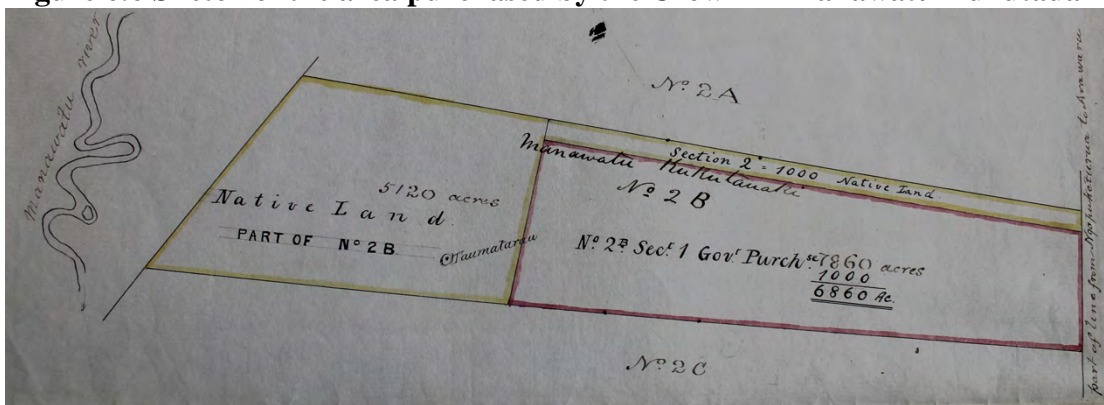 Manawatu river
No 2A
Section 2 = 1000 Native Land
Manawatu Kukutauaki
No 2B
5120 acres
Native Land
PART OF No 2B
Taumatarau
No 2B Sect 1 Govt Purchse 7860 acres
1000
6860 Ac.
No 2C
part of line from Ngapuketurua to Arawaru